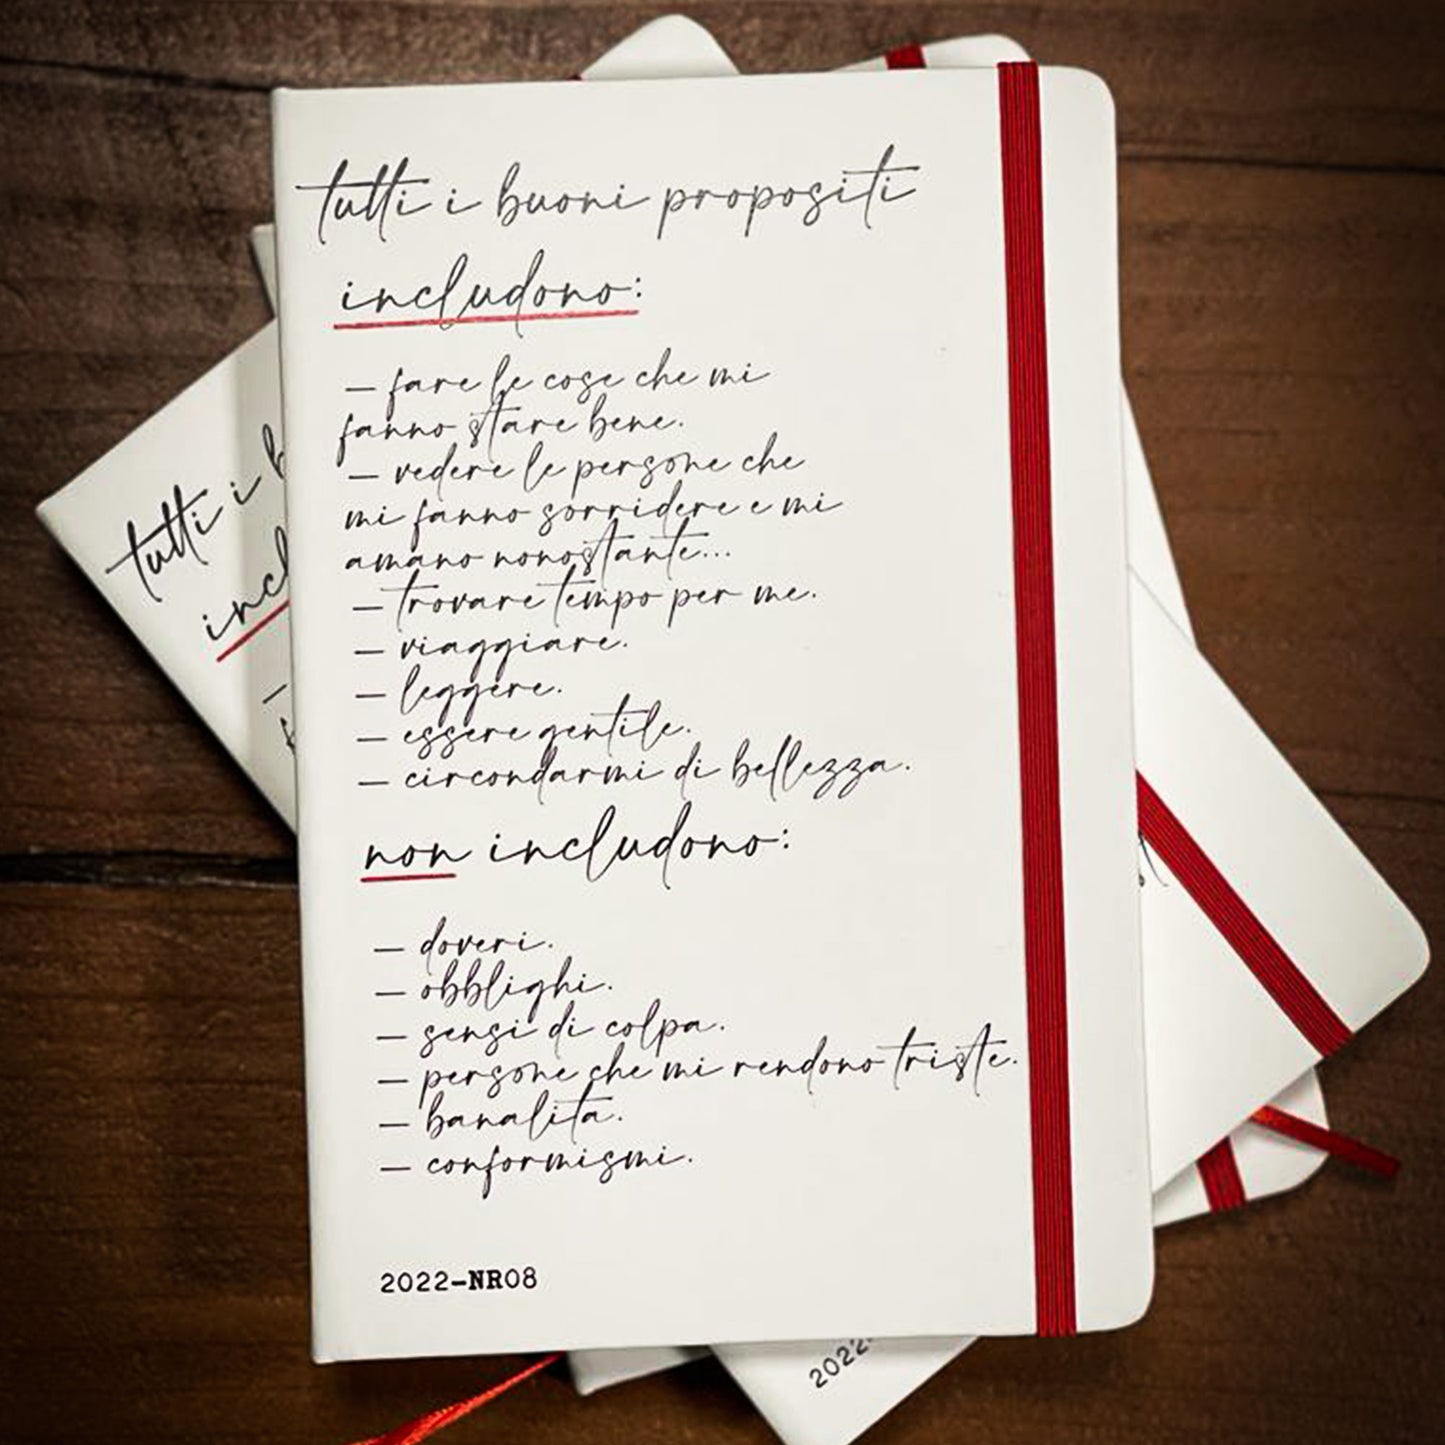 tutti i buoni propositi
includono:
– fare le cose che mi
fanno stare bene.
– vedere le persone che
mi fanno sorridere e mi
amano nonostante...
– trovare tempo per me.
– viaggiare.
– leggere.
– essere gentile.
– circondarmi di bellezza.
non includono:
– doveri.
– obblighi.
– sensi di colpa.
– persone che mi rendono triste.
– banalita.
– conformismi.
2022-NR08
tutti i
2022